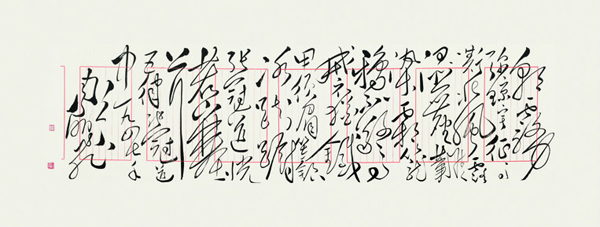 朝雾
弥琼宇征马
嘶北风露
湿尘难
染霜笼鸦
不惊
戎衣犹铁
甲须眉等银
冰踟蹰
张冠道恍
若塞上
行
五律张冠道
中一九四七年